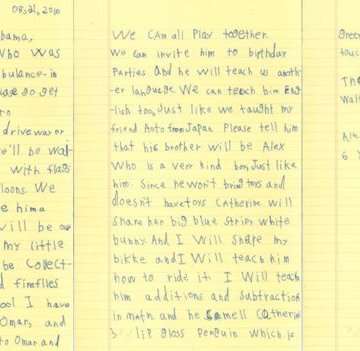 08,21,
bama,
who was
bulance-in
go get
ro
driveway or
e'll be wai-
with flags
loons. We
e him a
will be our
My little
be collect-
d fireflies
ool I have
Omar, and
to Omar and
We can all Play together.
We can invite him to birthday
Parties And he will teach us anoth-
er language We can teach him Eng
lish too, Just like we taught my
friend Aoto from Japan Please tell him
that his brother will be Alex
Who is a very kind boy, Just like
him. Since he won't bring toys and
doesn't have toys Catherine will
share her big blue stripy white
bunny. And I Will share my
bikke and I Will teach him
how to ride it. I Will teach
him additions and subtractions
In math and he smell Catherine
s lip gloss Penguin which is
green
touc
6 y